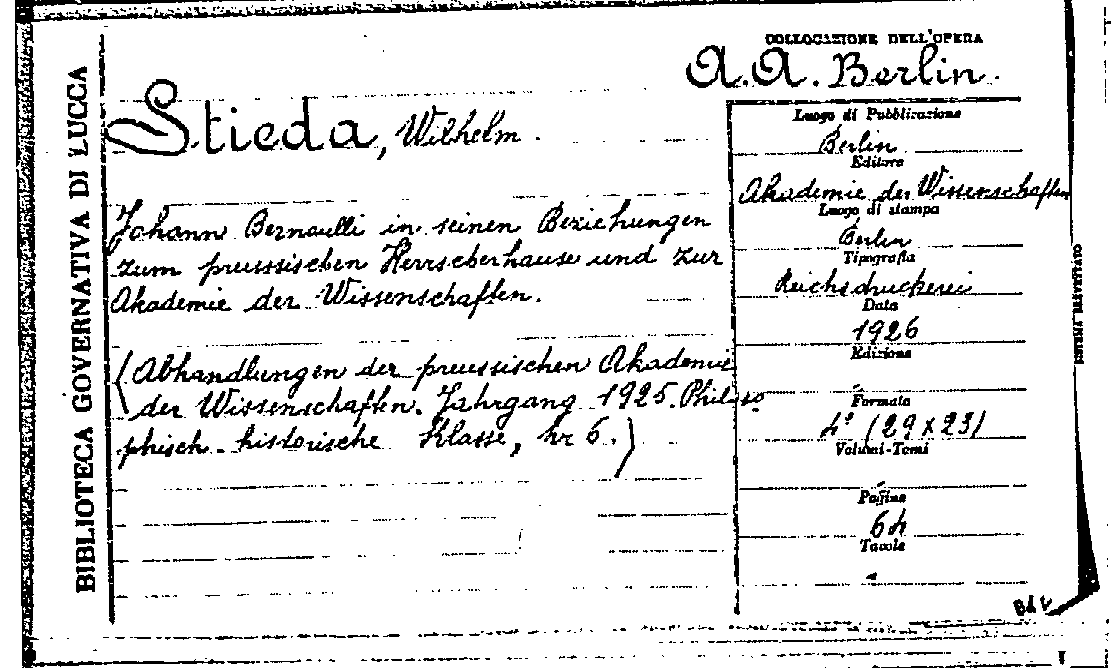 BIBLIOTECA GOVERNATIVA DI LUCCA
COLLOCAZIONE DELL'OPERA
A.A. Berlin.
Stieda, Wilhelm.
Johann Bernoulli in seinen Beziehungen
zum preussischen Herrscherhause und zur
Akademie der Wissenschaften.
(Abhandlungen der preussischen Akademie
der Wissenschaften. Jahrgang 1925. Philoso
phisch-historische Klasse, nr 6.)
Luogo di Pubblicazione
Berlin
Editore
Akademie der Wissenschaften
Luogo di stampa
Berlin
Tipografia
Reichsdruckerei
Data
1926
Edizione
Formato
4° (29x23)
Volumi-Tomi
Pagine
Tavole